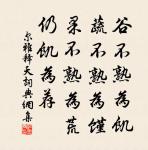 谷不熟為飢
蔬不熟為饉
果不熟為荒
仍飢為荐
尔雅释天詞典網集